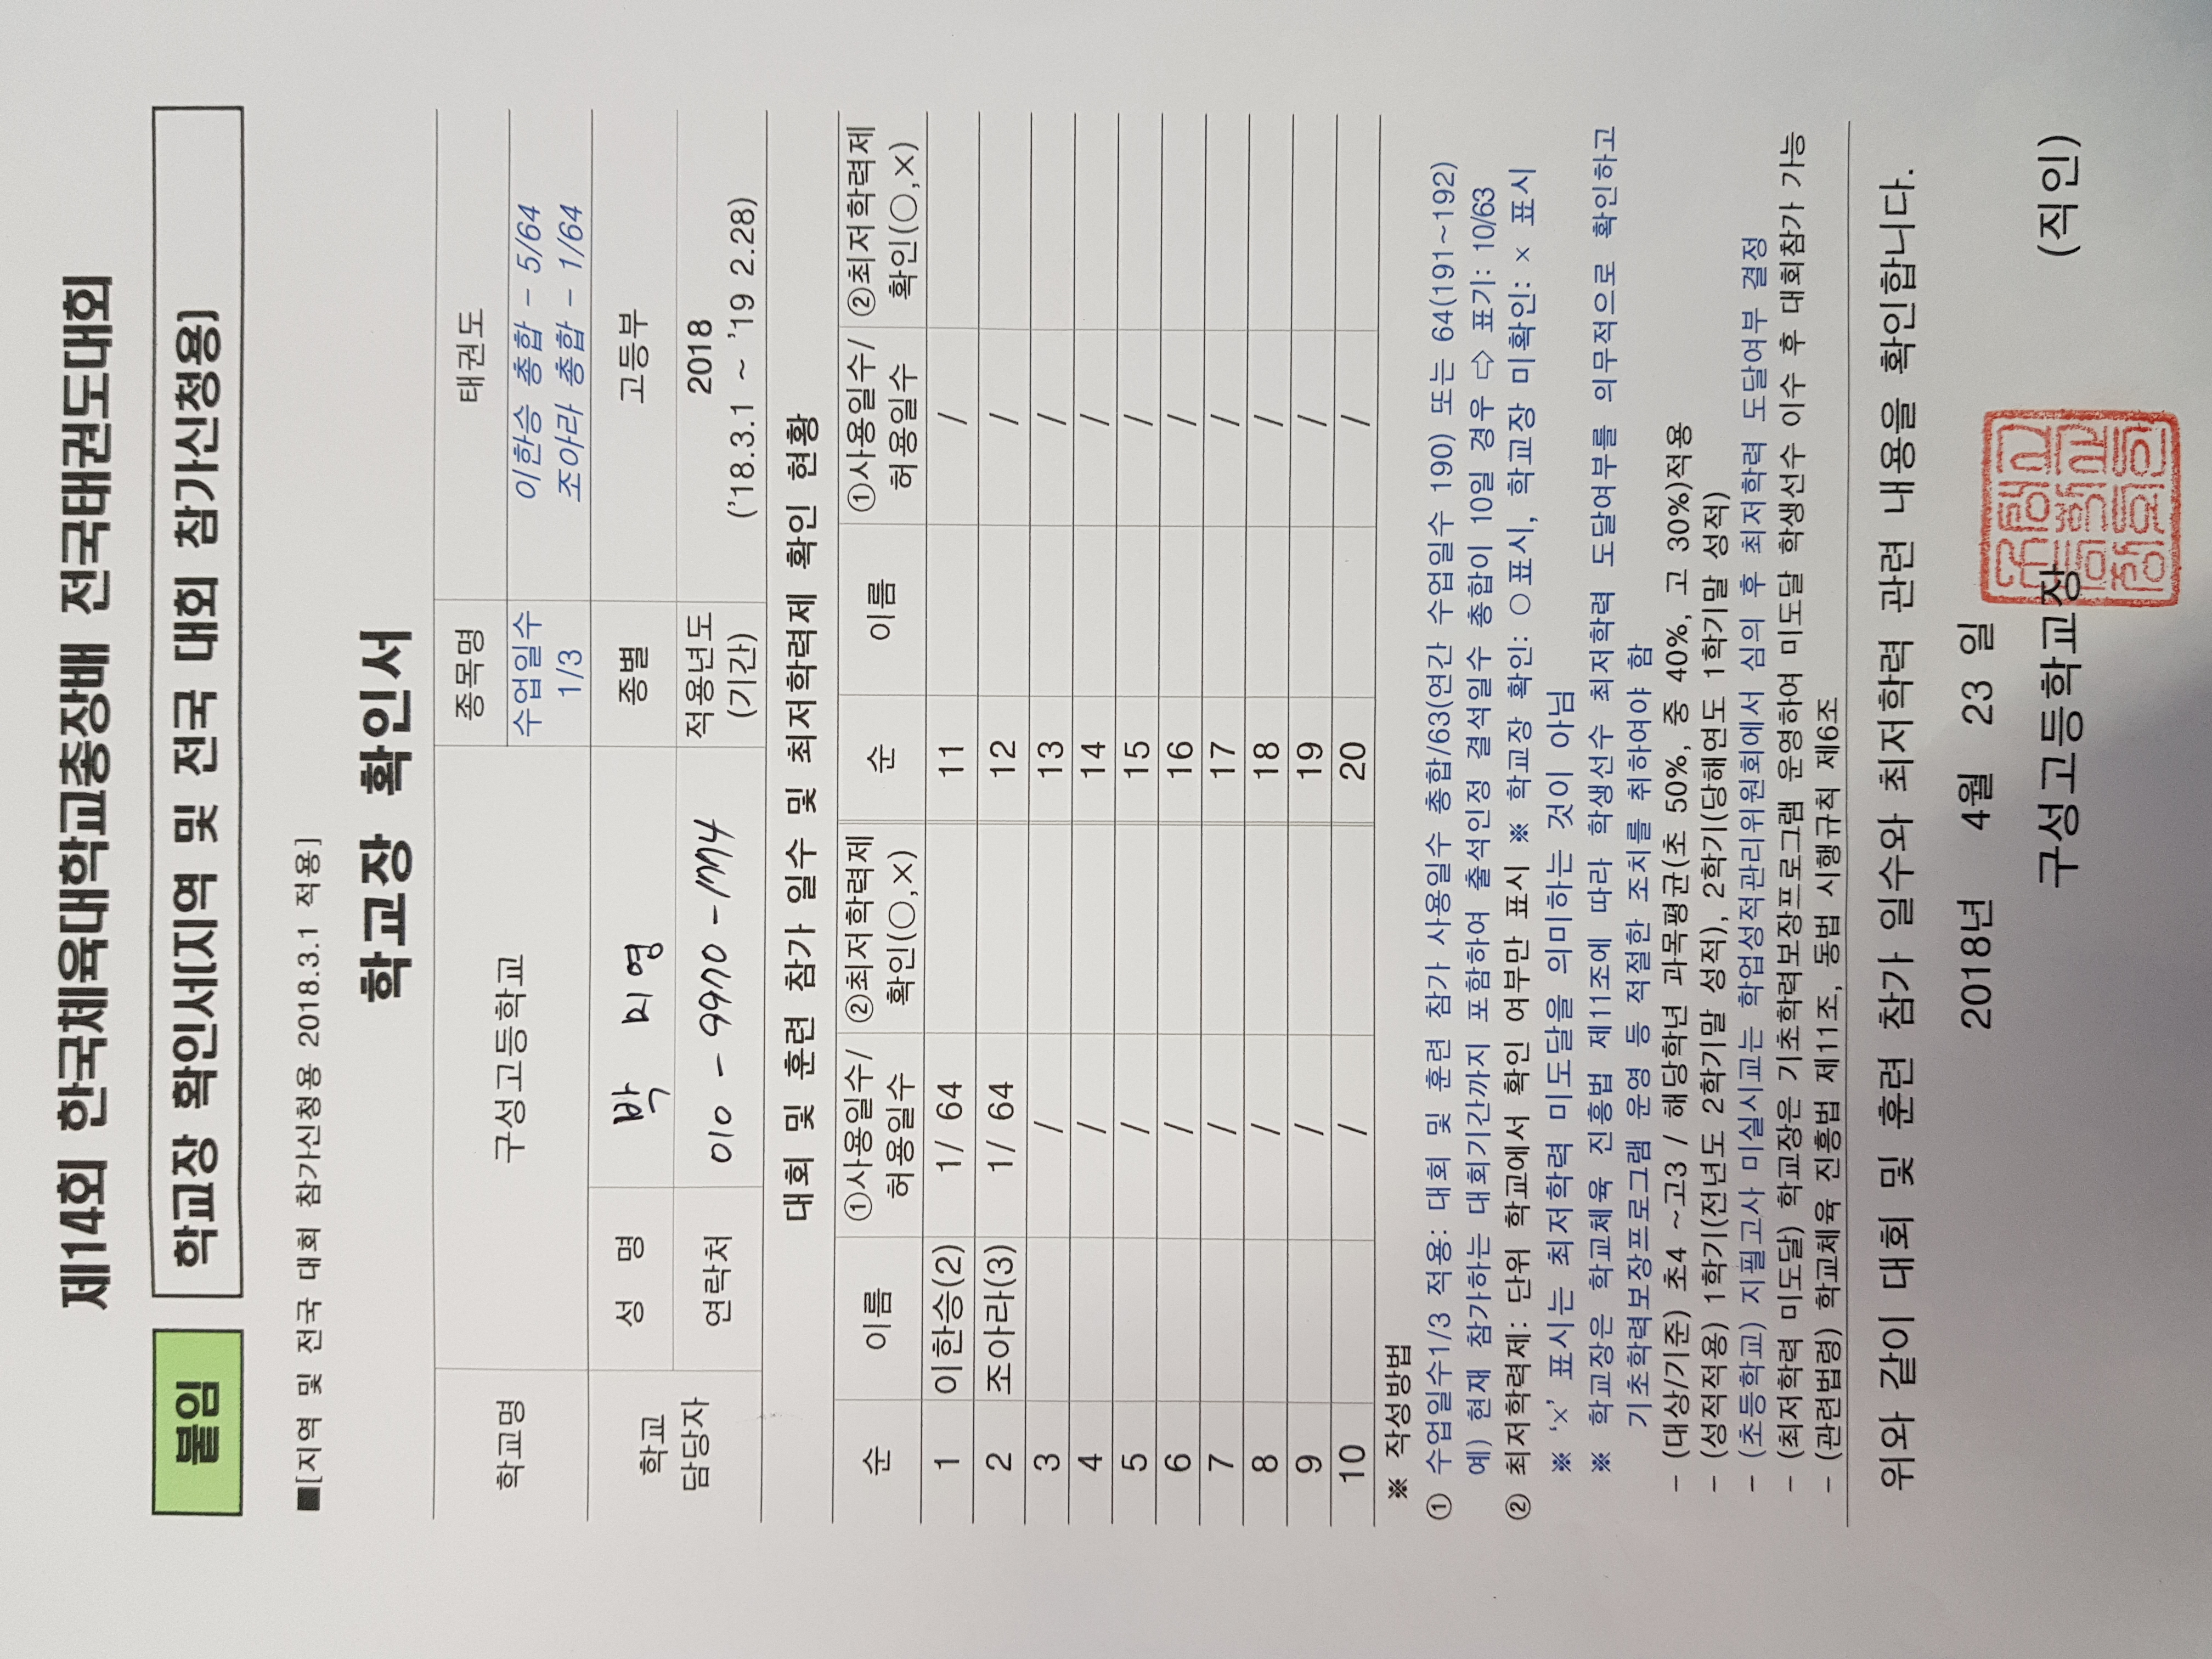 제14회 한국체육대학교총장배 전국태권도대회
붙임 학교장 확인서(지역 및 전국 대회 참가신청용)
■[지역 및 전국 대회 참가신청용 2018.3.1 적용]
학교장 확인서
학교명 구성고등학교 종목명 태권도
수업일수 1/3 이한승 총합 - 5/64
조아라 총합 - 1/64
학교 담당자 성 명 박 지 영 종별 고등부
연락처 010 - 9970 - 1774 적용년도 (기간) 2018
('18.3.1 ~ '19 2.28)
대회 및 훈련 참가 일수 및 최저학력제 확인 현황
순 이름 ①사용일수/ 허용일수 ②최저학력제 확인(○,×) 순 이름 ①사용일수/ 허용일수 ②최저학력제 확인(○,×)
1 이한승(2) 1/ 64 11 /
2 조아라(3) 1/ 64 12 /
3 / 13 /
4 / 14 /
5 / 15 /
6 / 16 /
7 / 17 /
8 / 18 /
9 / 19 /
10 / 20 /
※ 작성방법
① 수업일수1/3 적용: 대회 및 훈련 참가 사용일수 총합/63(연간 수업일수 190) 또는 64(191~192)
예) 현재 참가하는 대회기간까지 포함하여 출석인정 결석일수 총합이 10일 경우 ⇨ 표기: 10/63
② 최저학력제: 단위 학교에서 확인 여부만 표시 ※ 학교장 확인: ○표시, 학교장 미확인: × 표시
※ '×' 표시는 최저학력 미도달을 의미하는 것이 아님
※ 학교장은 학교체육 진흥법 제11조에 따라 학생선수 최저학력 도달여부를 의무적으로 확인하고
기초학력보장프로그램 운영 등 적절한 조치를 취하여야 함
- (대상/기준) 초4 ~고3 / 해당학년 과목평균(초 50%, 중 40%, 고 30%)적용
- (성적적용) 1학기(전년도 2학기말 성적), 2학기(당해연도 1학기말 성적)
- (초등학교) 지필고사 미실시교는 학업성적관리위원회에서 심의 후 최저학력 도달여부 결정
- (최저학력 미도달) 학교장은 기초학력보장프로그램 운영하여 미도달 학생선수 이수 후 대회참가 가능
- (관련법령) 학교체육 진흥법 제11조, 동법 시행규칙 제6조
위와 같이 대회 및 훈련 참가 일수와 최저학력 관련 내용을 확인합니다.
2018년 4월 23 일
구성고등학교장 (직인)